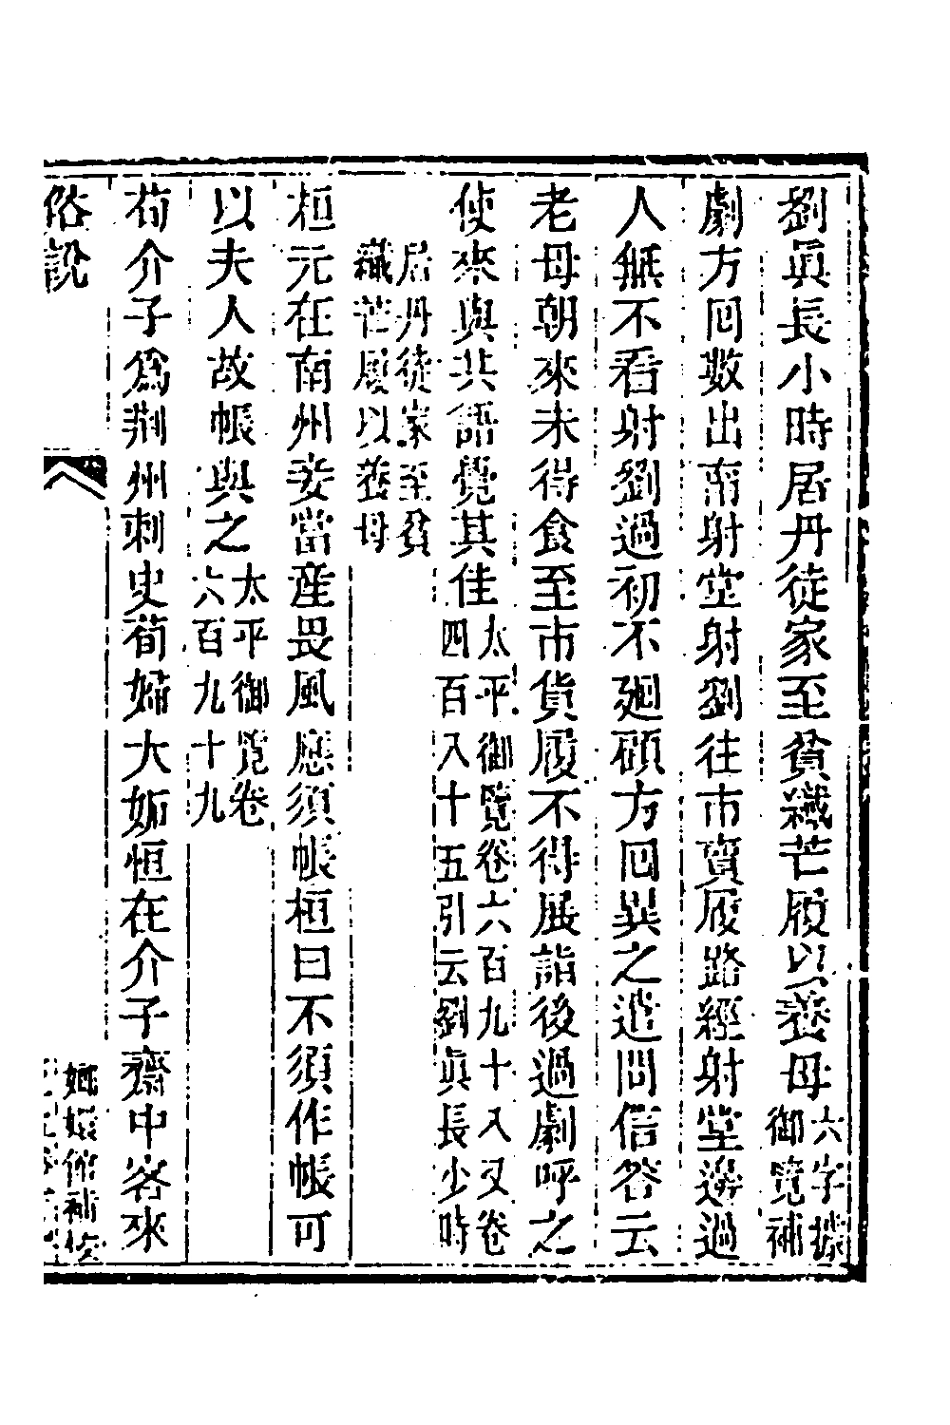 劉眞長小時居丹徒家至貧織芒履以養母六字據御覽補
劇方回數出南射堂射劉往市賣履路經射堂邊過
人無不看射劉過初不廻顧方回異之遣問信答云
老母朝來未得食至市貨履不得展詣後過劇呼之
使來與共語覺其佳太平御覽卷六百九十八又卷四百八十五引云劉眞長少時
居丹徒家至貧織芒履以養母
桓元在南州妾當産畏風應須帳桓曰不須作帳可
以夫人故帳與之太平御覽卷六百九十九
荀介子爲荆州刺史荀婦大妬恒在介子齋中客來
俗說
嫏嬛館補校